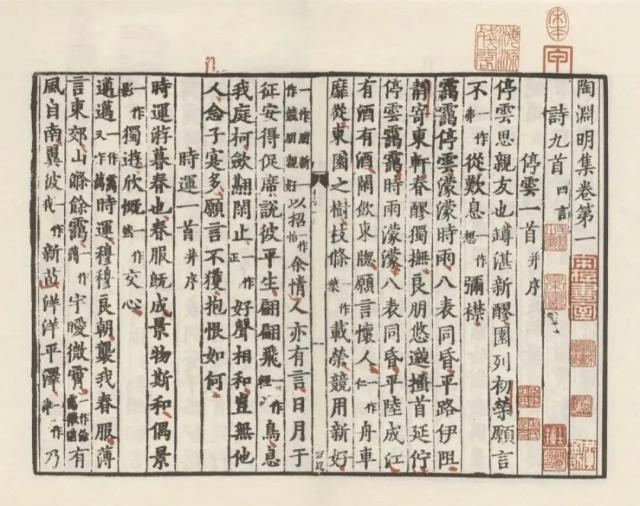 陶淵明集卷第一
詩九首 四言
停雲一首 并序
停雲思親友也罇湛新醪園列初榮願言
不一作弗從歎息一作想彌襟
靄靄停雲濛濛時雨八表同昏平路伊阻
靜寄東軒春醪獨撫良朋悠邈搔首延佇
停雲靄靄時雨濛濛八表同昏平陸成江
有酒有酒閑飲東牕願言懷人一作仁舟車
靡從東園之樹枝條一作葉載榮競用新好
一作朋新一作競朋親好以招一作怡余情人亦有言日月于
征安得促席說彼平生翩翩飛一作輕鳥息
我庭柯斂翮閑止一作正好聲相和豈無他
人念子寔多願言不獲抱恨如何
時運一首 并序
時運游暮春也春服既成景物斯和偶景
一作影獨遊欣慨一作然交心
邁邁時運穆穆良朝襲我春服薄
言東郊山滌餘靄一作藹宇曖微霄有
風自南翼彼一作我新苗洋洋平澤一作乃
宋本